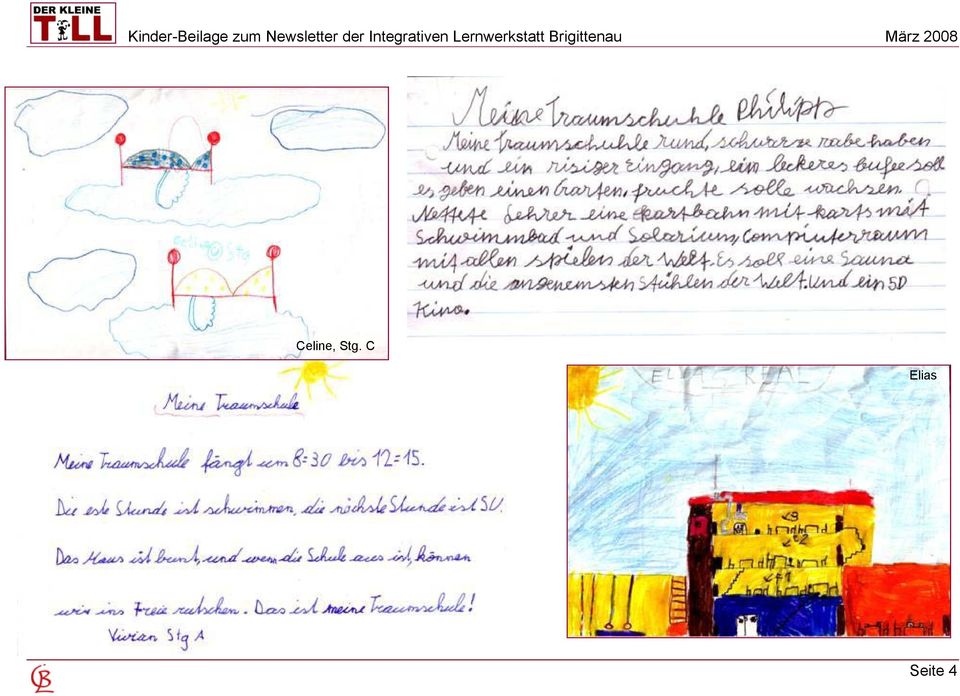 DER KLEINE
TILL
Kinder-Beilage zum Newsletter der Integrativen Lernwerkstatt Brigittenau März 2008
celine Stg
Celine, Stg. C
Meine Traumschuhle Philipp
Meine Traumschuhle rund, schwarze rabe haben
und ein risiger Eingang, ein leckeres bufee soll
es geben einen Garten, fruchte solle wachsen.
Nettete Lehrer eine Kartbahn mit karts mit
Schwimmbad und Solarium, Computerraum
mit allen spielen der Welt. Es soll eine Sauna
und die angenemsten Stühlen der Welt. Und ein 5D
Kino.
Meine Traumschule
Meine Traumschule fängt um 8=30 bis 12=15.
Die este Stunde ist schwimmen, die nächste Stunde ist SU.
Das Haus ist bunt, und wenn die Schule aus ist, können
wir ins Freie rutschen. Das ist meine Traumschule!
Vivian Stg A
ELIAS REAL
Elias
Seite 4